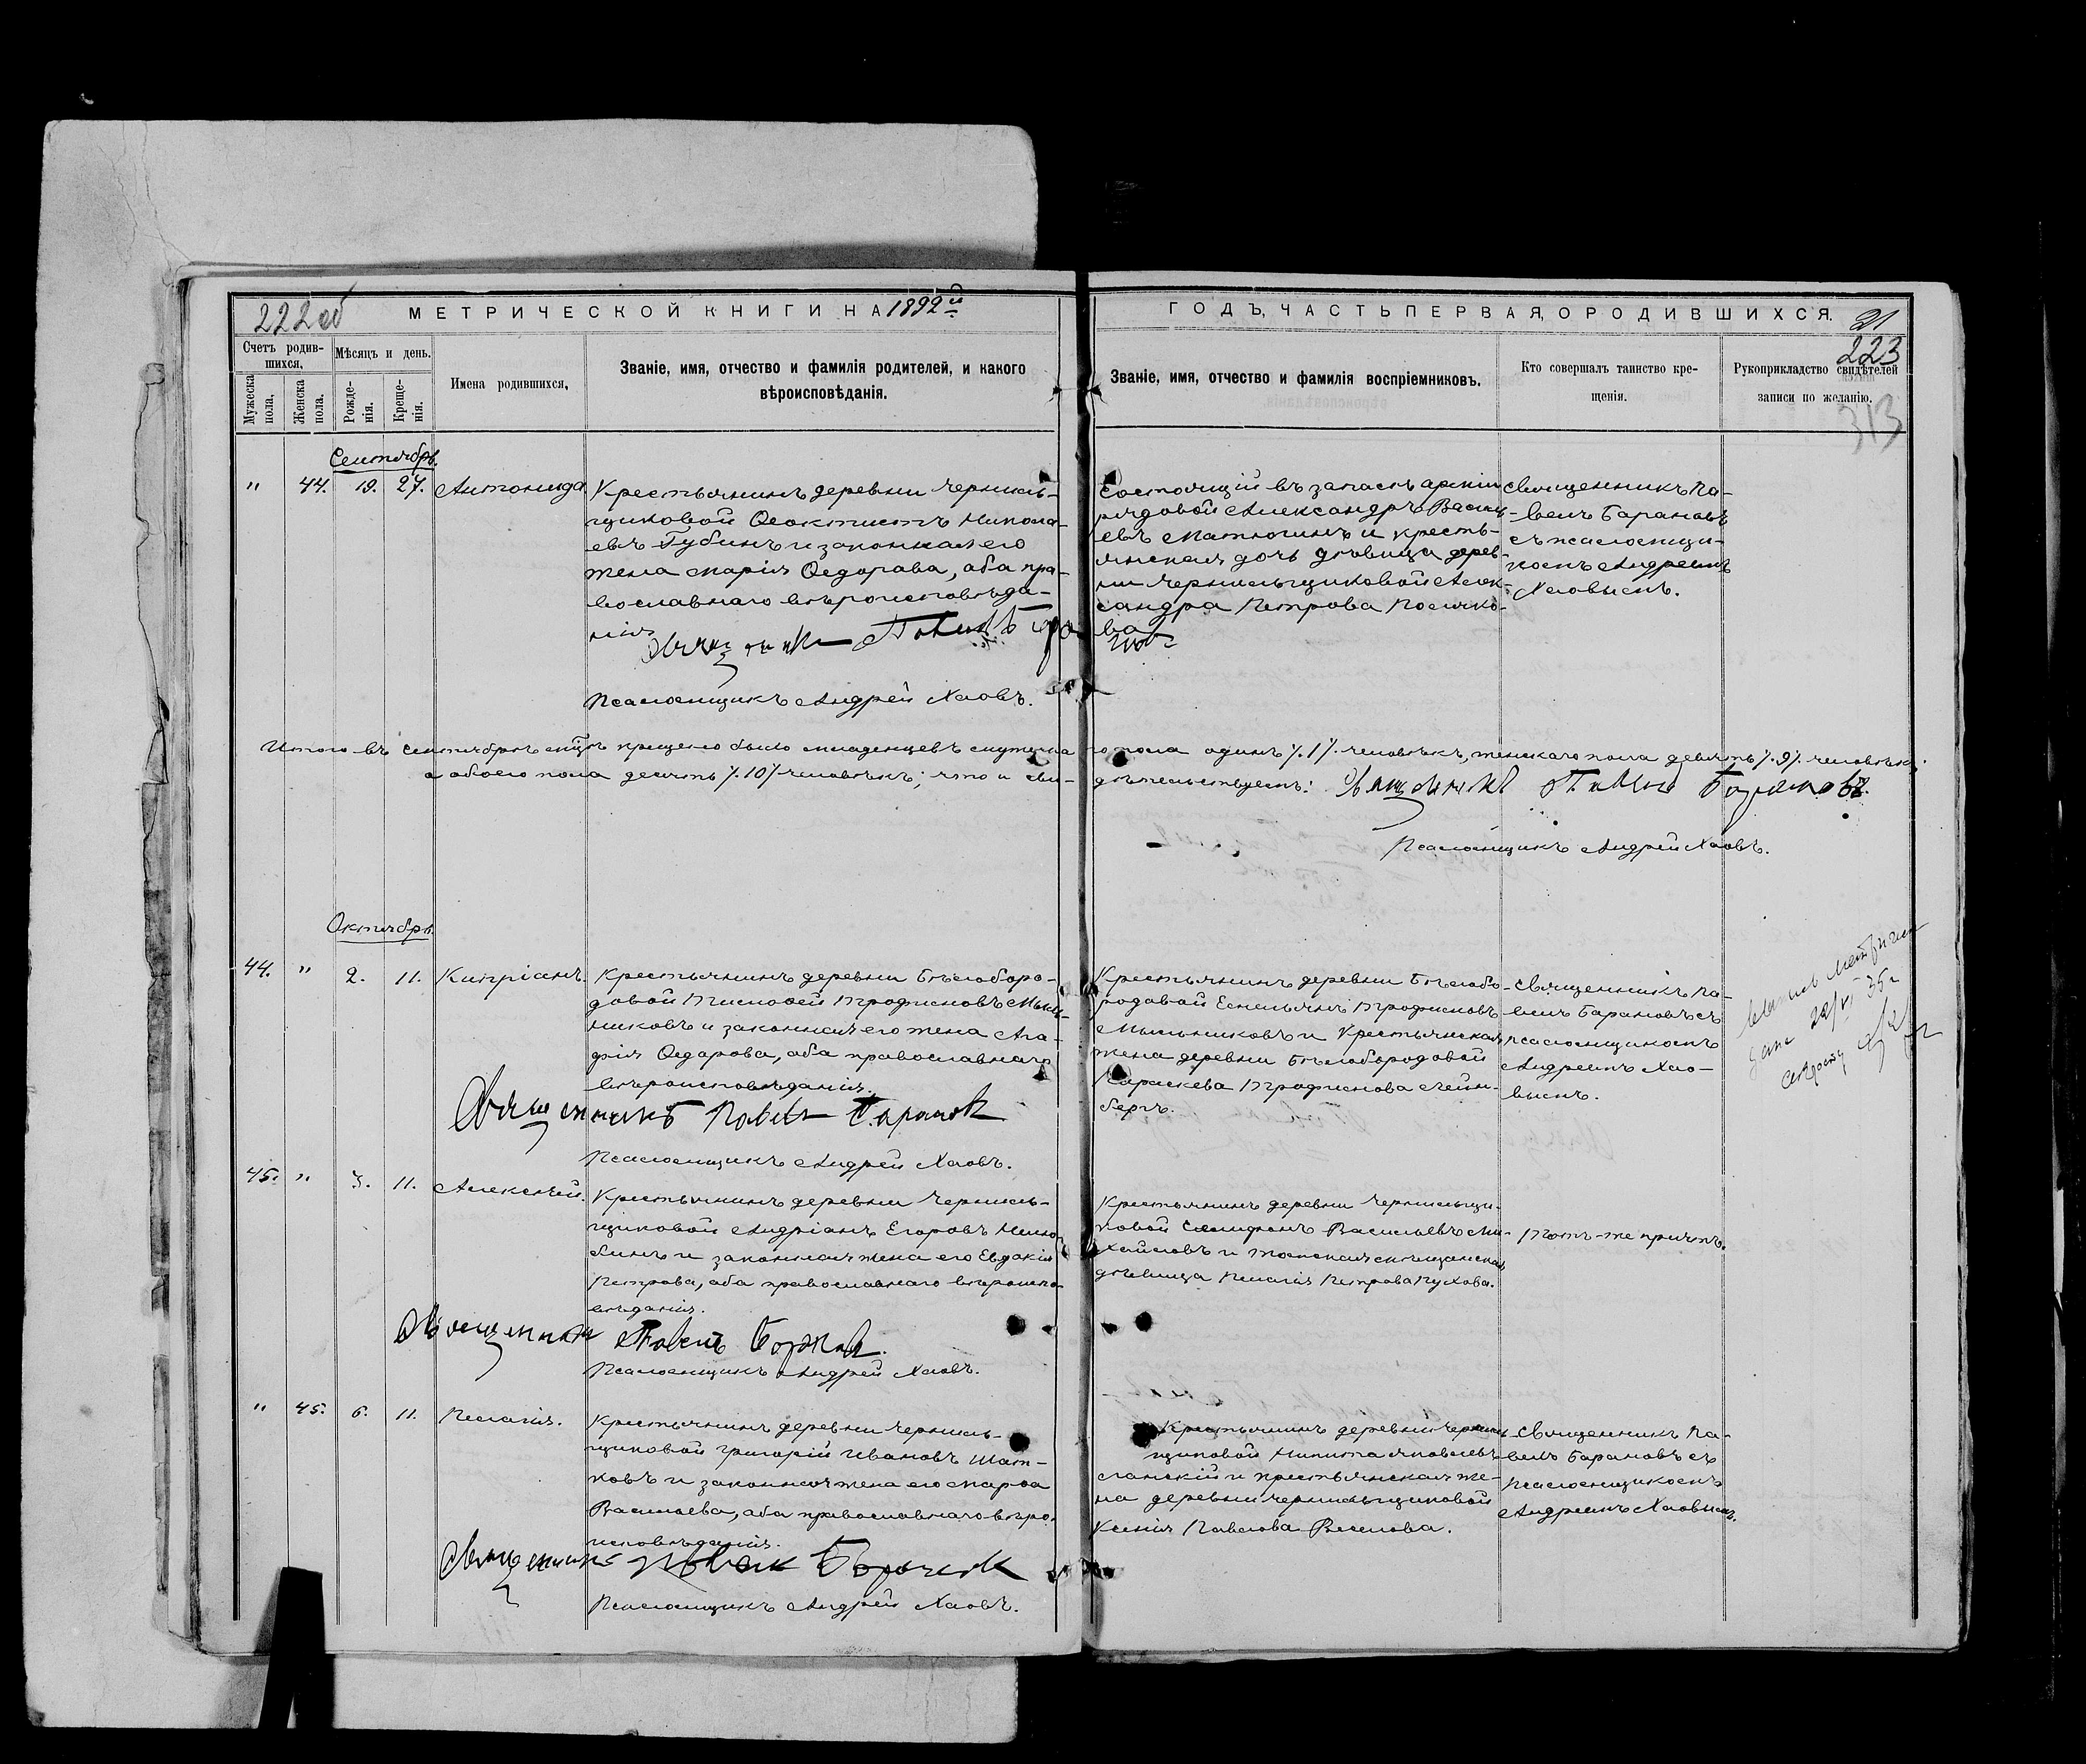 222 об
МЕТРИЧЕСКОЙ КНИГИ НА 1892й
ГОДЪ, ЧАСТЬ ПЕРВАЯ, О РОДИВШИХСЯ.
21
223
313
Счетъ родив-
шихся,
Мужеска
пола,
Женска
пола.
Мѣсяцъ и день.
Рожде-
нія.
Креще-
нія.
Имена родившихся,
Званіе, имя, отчество и фамилія родителей, и какого
вѣроисповѣданія.
Званіе, имя, отчество и фамилія воспріемниковъ.
Кто совершалъ таинство кре-
щенія.
Рукоприкладство свидѣтелей
записи по желанію.
Сентябрь.
" 44. 19. 27. Антонида
Крестьянинъ деревни Черниль-
щиковой Ѳеоктистъ Никола-
евъ Губинъ и законная его
жена Марія Ѳедорова, оба пра-
вославнаго вѣроисповѣда-
нія
Священникъ Павелъ
Псаломщикъ Андрей Хловъ.
Состоящій въ запасѣ арміи
рядовой Александръ Василь-
евъ Матюгинъ и кресть-
янская дочь дѣвица дерев-
ни Чернильщиковой Алек-
сандра Петрова Поляко-
ва
Священникъ Па-
велъ Барановъ
съ псаломщи-
комъ Андреемъ
Хловымъ.
Итого въ сентябрѣ мѣсяцѣ крещено было младенцевъ мужеска го пола одинъ /.1/. человѣкъ, женскаго пола девять /.9/. человѣкъ;
а обоего пола десять /.10/ человѣкъ; что и сви- дѣтельствуемъ: Священникъ Павелъ Барановъ.
Псаломщикъ Андрей Хловъ.
Октябрь.
44. " 2. 11. Кипріанъ.
Крестьянинъ деревни Бѣлоборо-
довой Тимофей Трофимовъ Мыль-
никовъ и законная его жена Ага-
фія Ѳедорова, оба православнаго
вѣроисповѣданія.
Священникъ Павелъ Барановъ
Псаломщикъ Андрей Хловъ.
Крестьянинъ деревни Бѣлобо-
родовой Емельянъ Трофимовъ
Мыльниковъ и Крестьянская
жена деревни Бѣлобородовой
Параскева Трофимова Лейн-
бергъ.
Священникъ Па-
велъ Барановъ съ
псаломщикомъ
Андреемъ Хло-
вымъ.
35 г
45. " 3. 11. Алексѣй.
Крестьянинъ деревни Черниль-
щиковой Андріанъ Егоровъ
и законная жена его Евдокія
Петрова, оба православнаго вѣроиспо-
вѣданія.
Священникъ Павелъ Барановъ.
Псаломщикъ Андрей Хловъ.
Крестьянинъ деревни Чернильщи-
ковой Васильевъ Ми-
хайловъ и томская мѣщанская
дѣвица Пелагія Петрова Пухова.
Тотъ-же причтъ.
" 45. 6. 11. Пелагія.
Крестьянинъ деревни Черниль-
щиковой Григорій Ивановъ Шат-
ковъ и законная жена его Марѳа
Васильева, оба православнаго вѣро-
исповѣданія.
Священникъ Павелъ Барановъ
Псаломщикъ Андрей Хловъ.
Крестьянинъ деревни Черниль-
щиковой Никита Яковлевъ
и крестьянская же-
на деревни Чернильщиковой
Ксенія Павлова Веселова.
Священникъ Па-
велъ Барановъ съ
псаломщикомъ
Андреемъ Хловымъ.